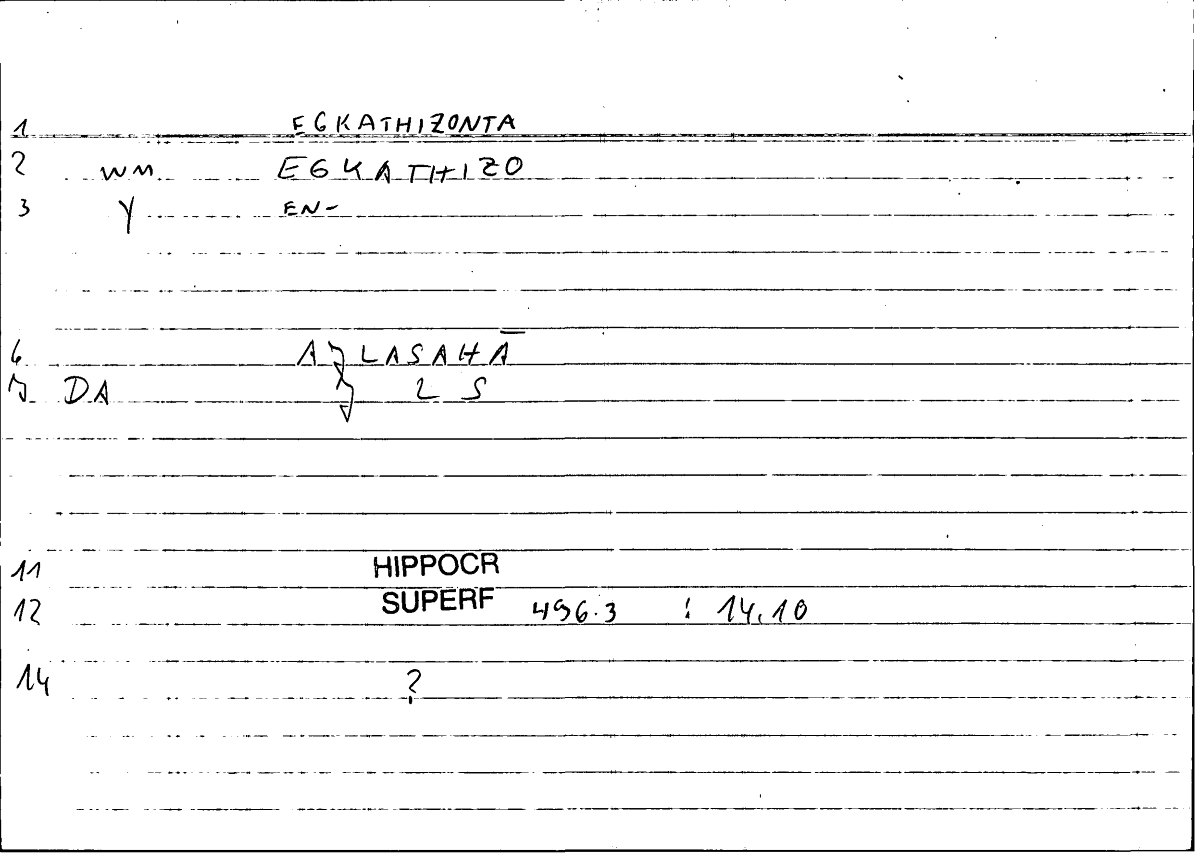 1 EGKATHIZONTA
2 wm EGKATHIZO
3 Y EN-
6 AJLASAHĀ
J DA J LS
11 HIPPOCR
12 SUPERF 496.3 : 14.10
14 ?